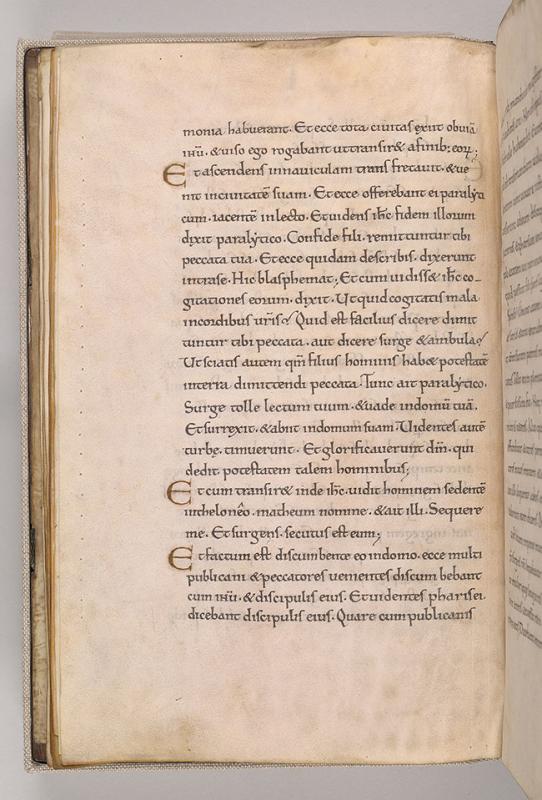 monia habuerant· Et ecce tota ciuitas exiit obuiā
ihū· &uiso ego rogabant uttransir& afinib; eoꝝ;
Et ascendens innauiculam trans fretauit· &ue
nit inciuitatē suam· Et ecce offerebant ei paralyti
cum· iacentē inlecto· Et uidens ihc fidem illorum
dixit paralytico· Confide fili· remittuntur tibi
peccata tua· Et ecce quidam describis· dixerunt
intrase· Hic blasphemat; Et cum uidiss& ihc co
gitationes eorum· dixit· Ut quid cogitatis mala
incordibus uris? Quid est facilius dicere dimit
tuntur tibi peccata· aut dicere surge &ambula?
Ut sciatis autem qm̄ filius hominis hab& potestatē
interra dimittendi peccata· Tunc ait paralytico·
Surge tolle lectum tuum· &uade indomū tuā·
Et surrexit· &abiit indomum suam· Uidentes autē
turbę· timuerunt· Et glorificauerunt dm̄· qui
dedit potestatem talem hominibus;
Et cum transir& inde ihc· uidit hominem sedentē
intheloneo· matheum nomine· &ait illi· Sequere
me· Et surgens· secutus est eum;
Et factum est discumbente eo indomo· ecce multi
publicani &peccatores uenientes discum bebant
cum ihū· &discipulis eius· Et uidentes pharisei
dicebant discipulis eius· Quare cum publicanis